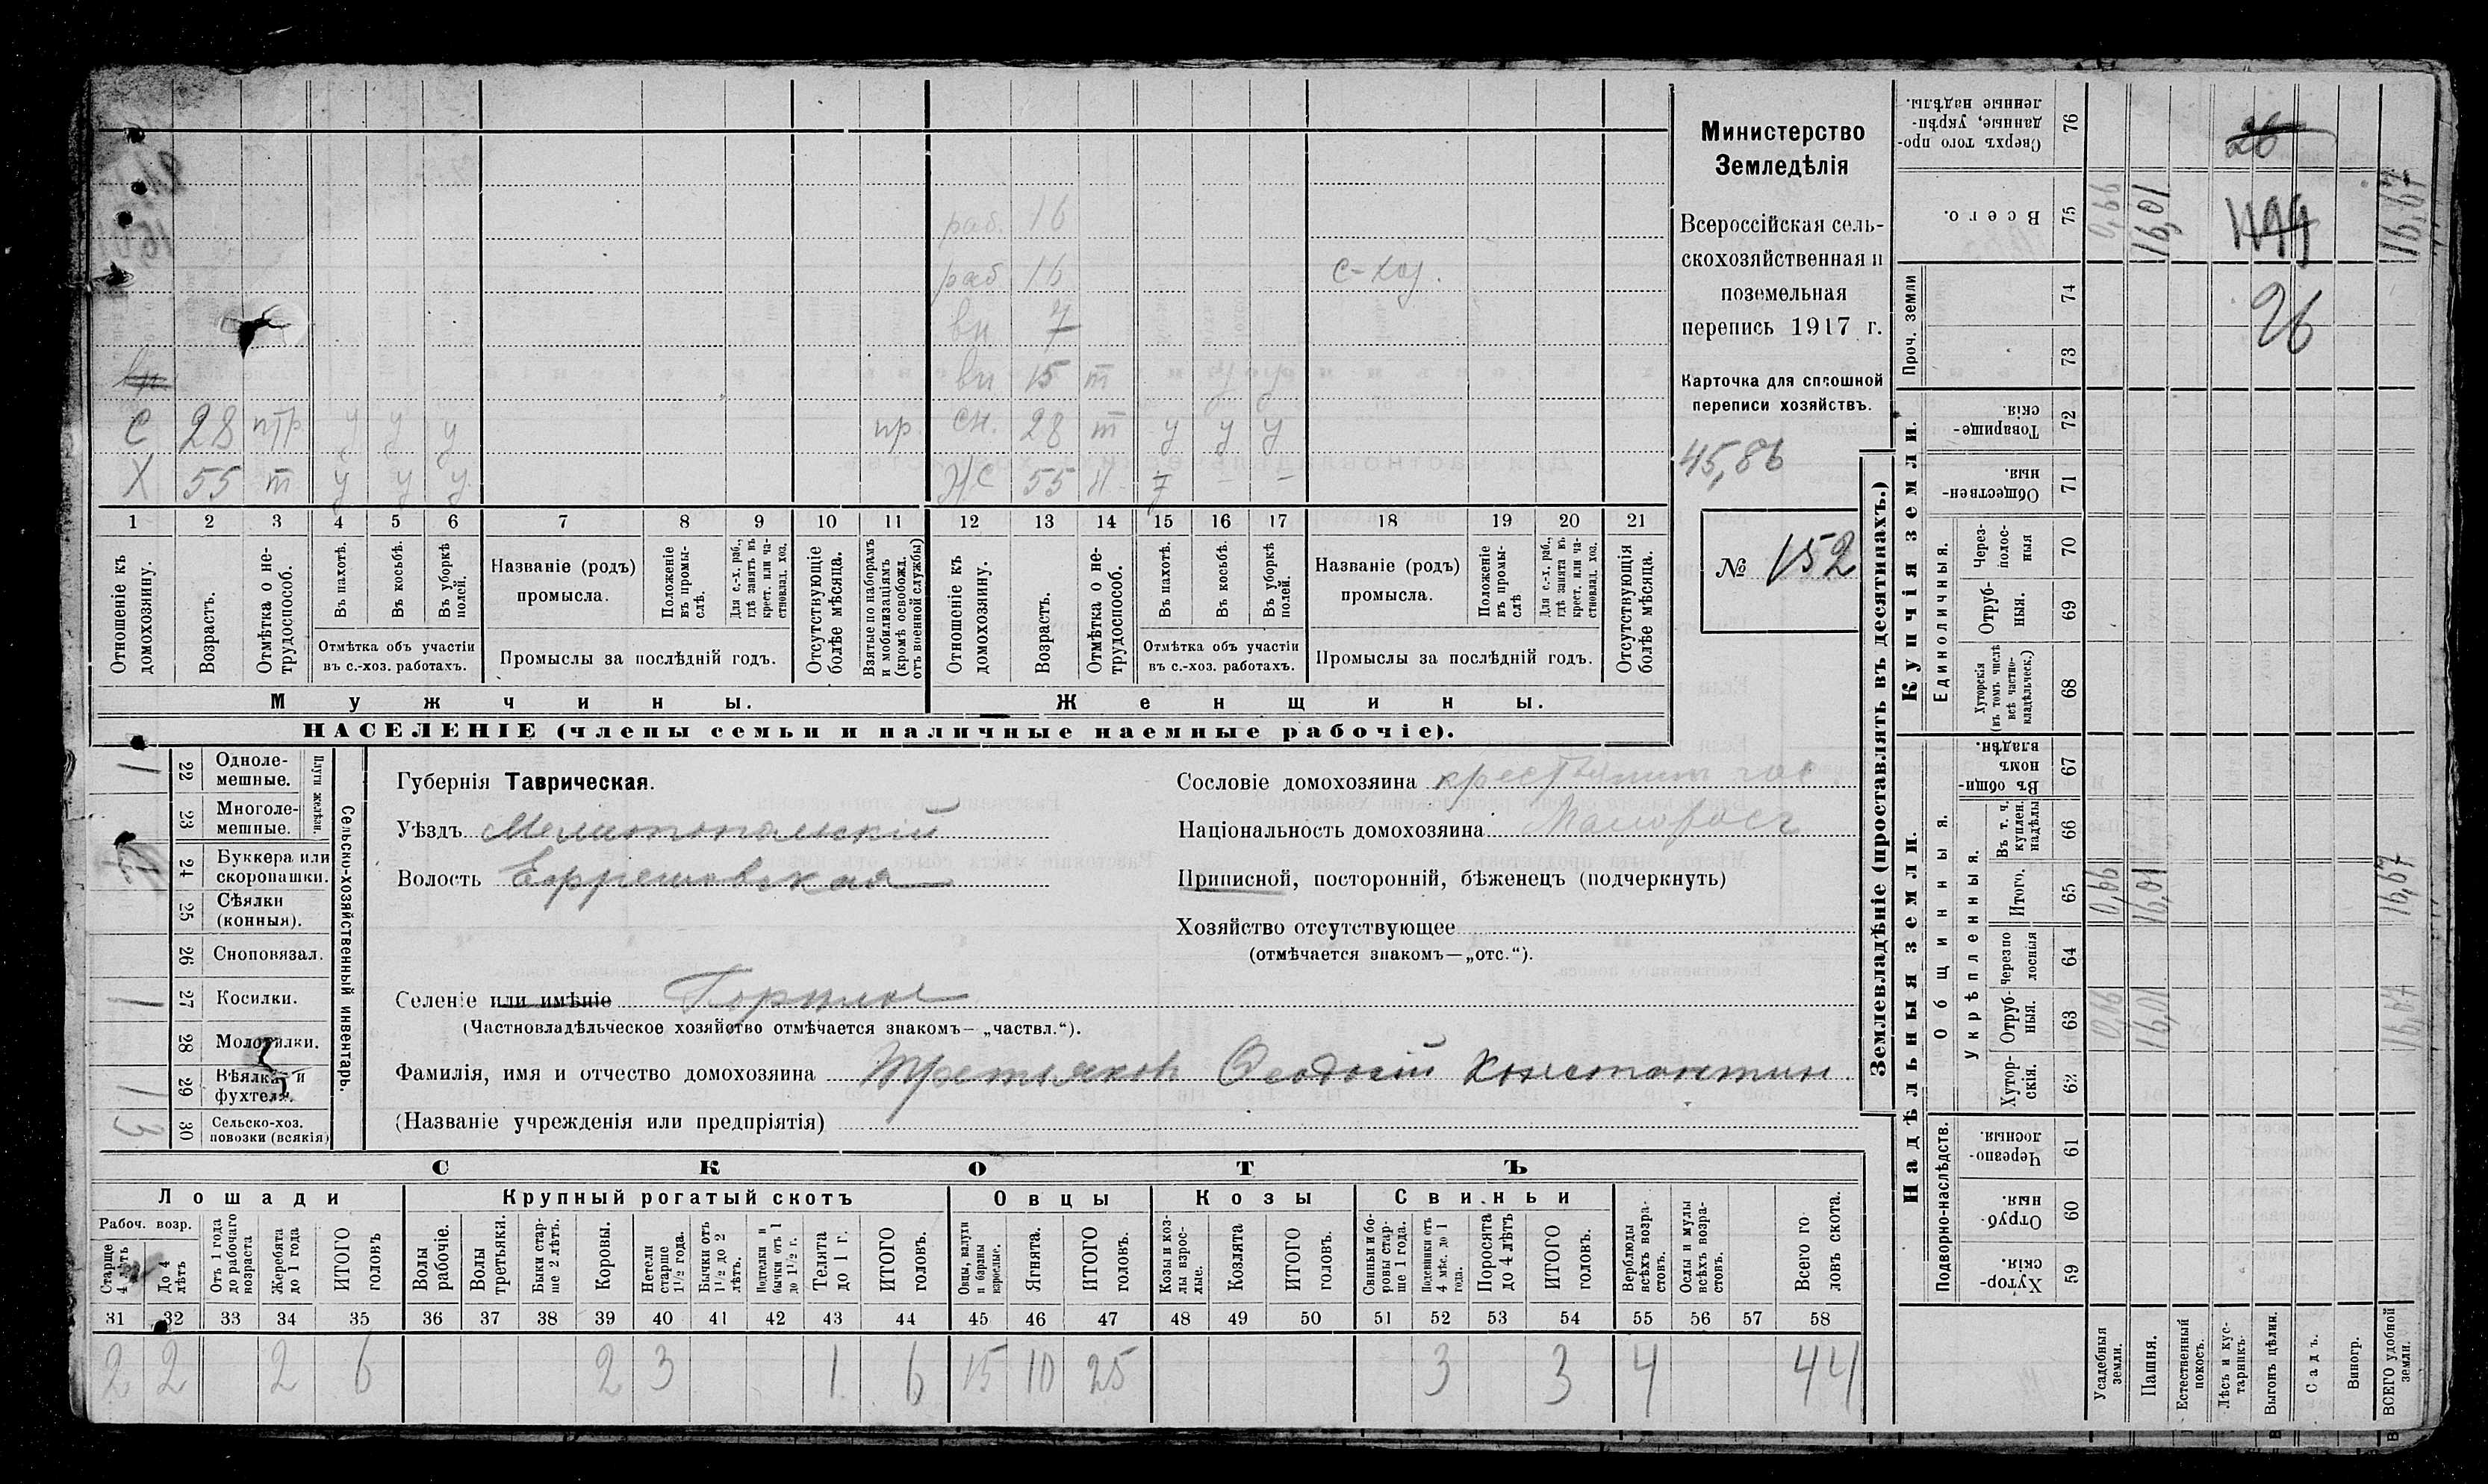 Министерство
Земледѣлія
Всероссійская сель-
скохозяйственная и
поземельная
перепись 1917 г.
Карточка для сплошной
переписи хозяйствъ.
45,86
№ 152
раб. 16
раб 16 с-хоз.
вн 7
вн 15 т у у
С 28 птр у у у пр. сн. 28 т у у у
Х 55 т у у у жс 55 н
1 2 3 4 5 6 7 8 9 10 11 12 13 14 15 16 17 18 19 20 21
Отношеніе къ домохозяину.
Возрастъ.
Отмѣтка о не-трудоспособ.
Въ пахотѣ.
Въ косьбѣ.
Въ уборкѣ полей.
Отмѣтка объ участіи
въ с.-хоз. работахъ.
Названіе (родъ)
промысла.
Положеніе въ промы-слѣ.
Для с.-х. раб., гдѣ занятъ въ крест. или ча-стновлад. хоз.
Промыслы за послѣдній годъ.
Отсутствующіе болѣе мѣсяца.
Взятые по наборамъ и мобилизаціямъ (кромѣ освобожд. отъ военной службы)
Отношеніе къ домохозяину.
Возрастъ.
Отмѣтка о не-трудоспособ.
Въ пахотѣ.
Въ косьбѣ.
Въ уборкѣ полей.
Отмѣтка объ участіи
въ с.-хоз. работахъ.
Названіе (родъ)
промысла.
Положеніе въ промы-слѣ
Для с.-х. раб., гдѣ занята въ крест. или ча-стновлад. хоз.
Промыслы за послѣдній годъ.
Отсутствующія болѣе мѣсяца.
Мужчины. Женщины.
НАСЕЛЕНІЕ (члены семьи и наличные наемные рабочіе).
Сельско-хозяйственный инвентарь.
Плуги желѣзн.
1 22 Одноле-мешные.
23 Многоле-мешные.
24 Буккера или скоропашки.
25 Сѣялки (конныя).
26 Сноповязал.
1 27 Косилки.
28 Молотилки.
1 29 Вѣялка и фухтеля.
3 30 Сельско-хоз. повозки (всякія)
Губернія Таврическая.
Уѣздъ Мелитопольскій
Волость Ефремовская
Селеніе или имѣніе Горилое
(Частновладѣльческое хозяйство отмѣчается знакомъ—„частвл.“).
Фамилія, имя и отчество домохозяина Третьяковъ Ѳеодосій Константин.
(Названіе учрежденія или предпріятія)
Сословіе домохозяина крестьянинъ
Національность домохозяина Малоросс
Приписной, посторонній, бѣженецъ (подчеркнуть)
Хозяйство отсутствующее
(отмѣчается знакомъ—„отс.“).
СКОТЪ
Лошади Крупный рогатый скотъ Овцы Козы Свиньи
Рабоч. возр.
Старше 4 лѣтъ
До 4 лѣтъ
Отъ 1 года до рабочаго возраста
Жеребята до 1 года
ИТОГО головъ
Волы рабочіе.
Волы третьяки.
Быки стар-ше 2 лѣтъ.
Коровы.
Нетели старше 1½ года.
Бычки отъ 1½ до 2 лѣтъ.
Подтелки и бычки отъ 1 до 1½ г.
Телята до 1 г.
ИТОГО головъ.
Овцы, валухи и бараны взрослые.
Ягнята.
ИТОГО головъ.
Козы и коз-лы взрос-лые.
Козлята
ИТОГО головъ.
Свиньи и бо-ровы стар-ше 1 года.
Подсвинки отъ 4 мѣс. до 1 года.
Поросята до 4 лѣтъ
ИТОГО головъ.
Верблюды всѣхъ возра-стовъ.
Ослы и мулы всѣхъ возра-стовъ.
Всего го ловъ скота.
31 32 33 34 35 36 37 38 39 40 41 42 43 44 45 46 47 48 49 50 51 52 53 54 55 56 57 58
2 2 2 6 2 3 1 6 15 10 25 3 3 4 44
Землевладѣніе (проставлять въ десятинахъ.)
Купчія земли.
Надѣльныя земли.
Сверхъ того про-данные, укрѣп-ленные надѣлы. 76 26
Всего. 75 0,66 16,01 16,67
Проч. земли 74 26
73
Товарище-скія. 72
Обществен-ныя. 71
Единоличныя.
Через-полос-ныя 70
Отруб-ныя. 69
Хуторскія (въ томъ числѣ всѣ частно-владѣльческ.) 68
Общинныя.
Въ общин-номъ владѣн. 67
Укрѣпленныя.
Въ т. ч. куплен. надѣлы 66
Итого. 65 0,66 16,01 16,67
Черезпо лосныя 64
Отруб-ныя. 63 0,66 16,01 16,67
Хутор-скія. 62
Подворно-наслѣдств.
Черезпо-лосныя. 61
Отруб-ныя. 60
Хутор-скія. 59
Усадебныя земли.
Пашня.
Естественный покосъ.
Лѣсъ и кус-тарникъ.
Выгонъ цѣлин.
Садъ.
Виногр.
ВСЕГО удобной земли.